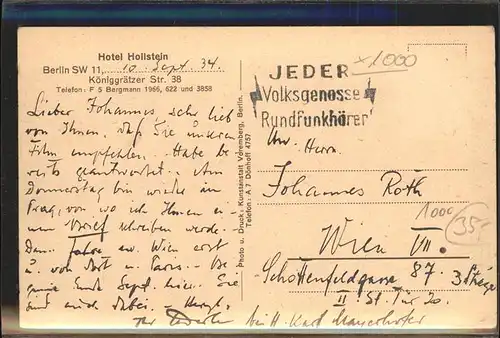 Hotel Hollstein
Berlin SW 11, 10. Sept. 34.
Königgrätzer Str. 38
Telefon: F 5 Bergmann 1966, 622 und 3858
Lieber Johannes, sehr lieb
von Ihnen, daß Sie unseren
Film empfehlen. Habe be
reits geantwortet. Am
Donnerstag bin wieder in
Prag, von wo ich Ihnen ei-
nen Brief schreiben werde.
Dann fahre nach Wien erst
u. von dort n. Paris. Be
ginne Ende Sept. hier. Sie
sind auch dabei. Herzl.
Ihr
Photo u. Druck: Kunstanstalt Voremberg, Berlin.
Telefon: A 7 Dönhoff 4757
x1000
JEDER
Volksgenosse
Rundfunkhörer
Herrn
Johannes Roth
1000
35
Wien VII.
Schottenfeldgasse 87. 3. Stiege
II St. Tür 20.
bei H. Karl Mayerhofer